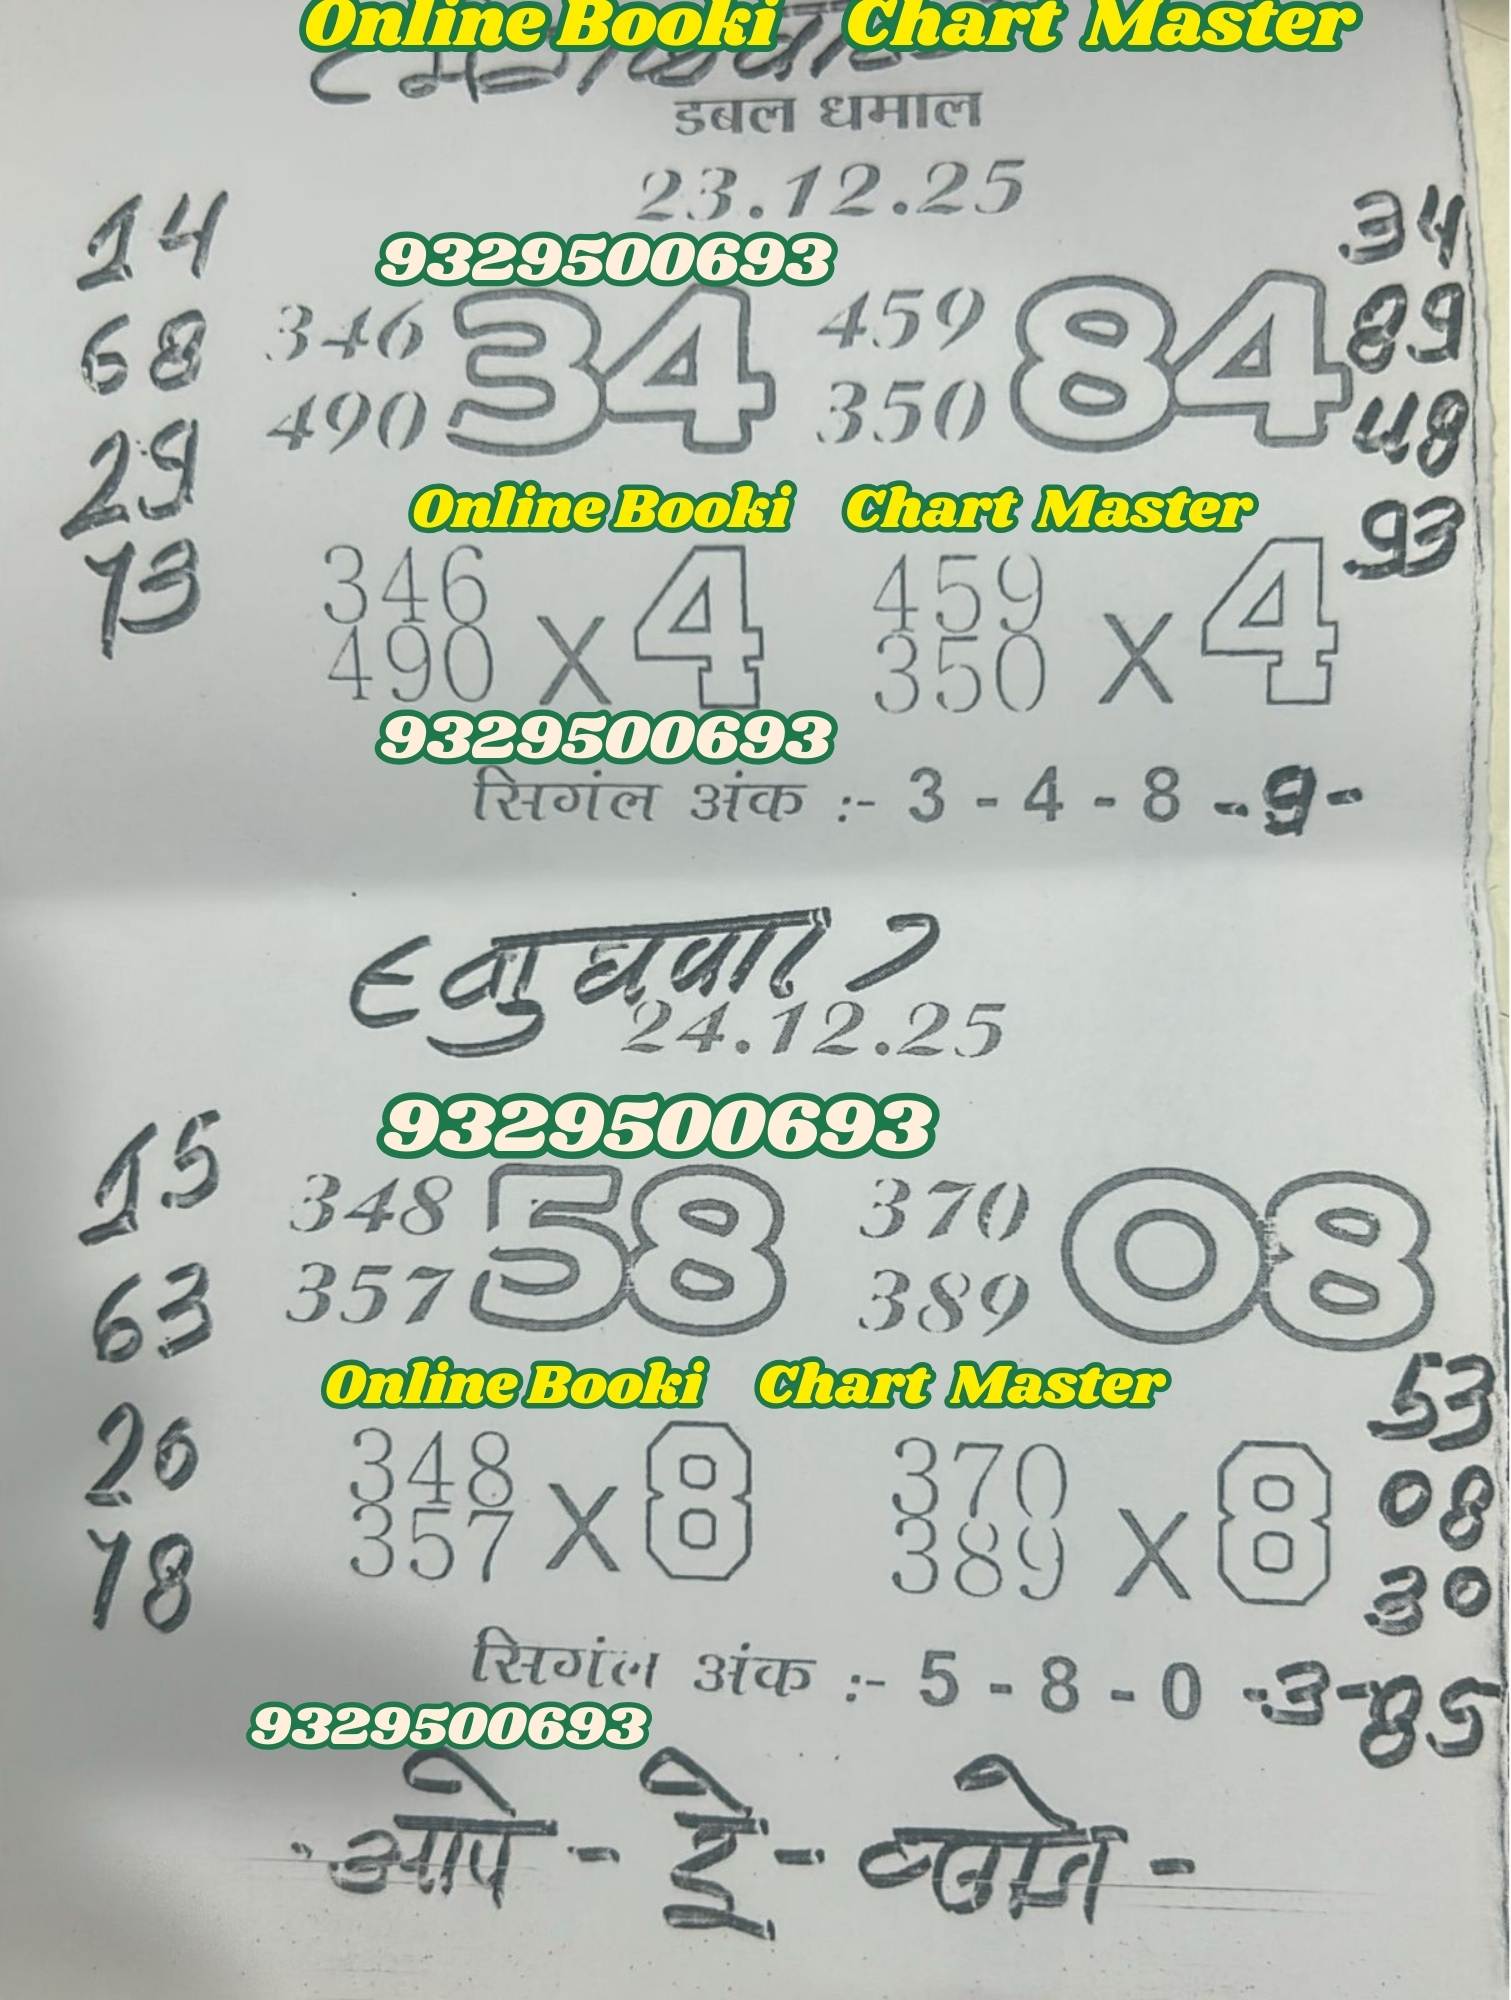 Online Booki Chart Master
डबल धमाल
23.12.25
9329500693
14 34
68 346 34 459 84 89
490 350 48
29
Online Booki Chart Master
93
73 346 x 4 459 x 4
490 350
9329500693
सिगंल अंक :- 3 - 4 - 8 - 9 -
( बुधवार )
24.12.25
9329500693
15 348 58 370 08
63 357 389
Online Booki Chart Master
53
26 348 x 8 370 x 8 08
18 357 389 30
सिगंल अंक :- 5 - 8 - 0 - 3 - 85
9329500693